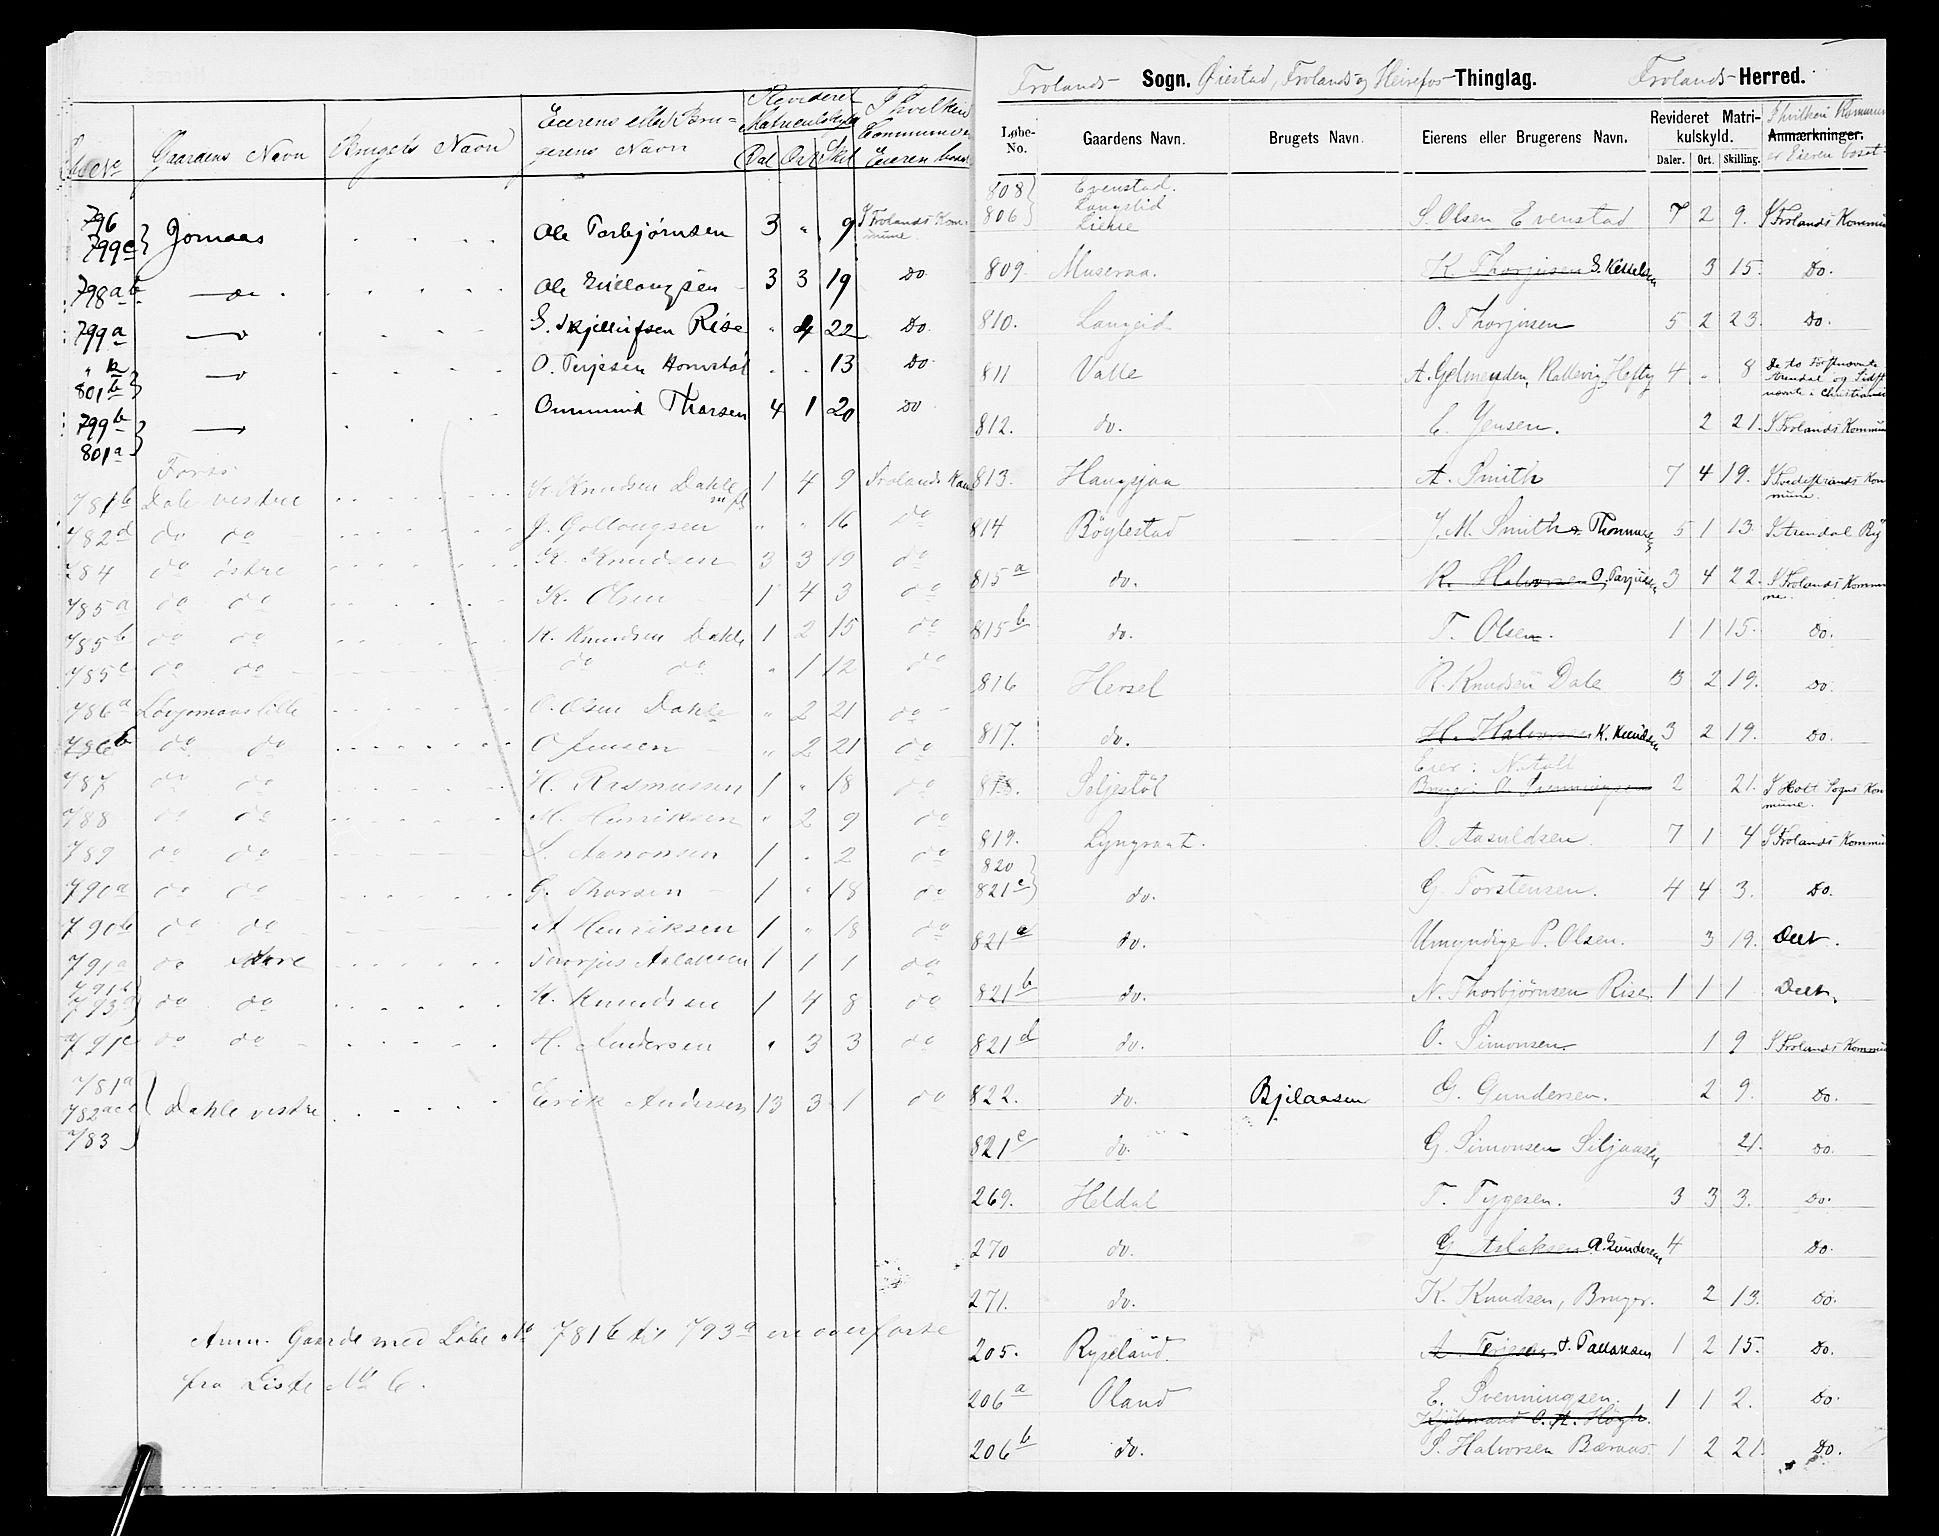 Løbe No Gaardens Navn Brugets Navn Eierens eller Bru-
gerens Navn Revideret
Matriculskyld
Dal Ort Skil I hvilken
Commune er
Eieren bosat
796
799c } Jomaas Ole Torbjørnsen 3 " 9 I Frolands Kom-
mune
798ab —do— Ole Gullougsen 3 3 19 Do
799a —do— S. Kjellufsen Rise " 4 22 Do.
" k
801b } —do— O. Terjesen Hornstøl . . 13 Do
799b
801a } —do— Ommund Tharsen 4 1 20 Do
Forso
781b Dale vestre K. Knudsen Dahle
m.fl. 1 4 9 Frolands Kom
782d do do J. Gollougsen " " 16 do
784 do östre K. Knudsen 3 3 19 do
785a do do K. Olsen 1 4 3 do
785b do do K. Knudsen Dahle 1 2 15 do
785c do do do do " 1 12 do
786a Løvjomaas lille O. Olsen Dahle " 2 21 do
786b do do O Jensen " 2 21 do
787 do do H. Rasmussen 1 " 18 do
788 do do M. Henriksen " 2 9 do
789 do do S. Aanonsen 1 " 2 do
790a do do G. Tharsen 1 " 18 do
790b do do A Henriksen 1 " 18 do
791a do Store Thorjus Aslaksen 1 1 1 do
791b
793a } do do K. Knudsen 1 4 8 do
791c do do H. Andersen " 3 3 do
781a
782ace
783 } Dahle vestre Erik Andersen 13 3 1 do
Anm. Gaarde med Løbe No 781b til 793a ere overførte
fra Liste No 6.
Frolands Sogn. Øiestad, Frolands og Heirefos Thinglag. Frolands Herred.
Løbe-
No. Gaardens Navn. Brugets Navn. Eierens eller Brugerens Navn. Revideret Matri-
kulskyld.
Daler. Ort. Skilling. I hvilken Kommune
Anmærkninger.
er Eieren bosat
808
806 } Evenstad.
Langelid
Lishe S. Olsen Evenstad 7 2 9. I Frolands Kommune
809. Museraa. K. Thorjusen S. Kittelsen 3 15. Do.
810. Langeid O. Thorjusen 5 2 23. Do.
811 Valle A. Gelmeyden, Kallevig, Hefty 4 " 8 De to Førstnævnte
Arendal og Sidst
nævnte i Christiania
812. do. E. Jensen. 2 21. I Frolands Kommune
813. Haugsjaa A. Smith 7 4 19. I Tvedestrands Kom
mune.
814 Böylestad J. M. Smith Thommesen 5 1 13 I Arendal By
815a do. K. Halvorsen O. Terjusen 3 4 22. I Frolands Kommu
ne.
815b do. T. Olsen. 1 1 15. Do.
816 Hersel R. Knudsen Dale 3 2 19. Do.
817. do. H. Halvorsen K. Knudsen 3 2 19. Do.
818. Seljestöl Eier: N. Natall
Bruger O. Svenningsen 2 21. I Holt Sogns Kom
mune.
819. Lyngraat. O. Aasuldsen 7 1 4 I Frolands Kommune
820
821c } do. G. Torstensen. 4 4 3. Do.
821a do. Umyndige P. Olsen. 3 19. Deet.
821b do. N. Thorbjörnsen Rise. 1 1 1 Deet.
821d do. O. Simonsen. 1 9 I Frolands Kommune
822. do. Bjelaasen G. Gundersen. 2 9. Do.
821e do. G. Simonsen Siljaasen 21. Do.
269. Heldal T. Tygesen. 3 3 3. Do.
270 do. G. Aslaksen A. Gundersen 4 Do.
271. do. K. Knudsen, Bruger. 2 13. Do.
205. Ryseland. A. Terjesen T. Tallaksen 1 2 15. Do.
206a Oland E. Svenningsen. 1 1 2. Do.
Kjöbmand O. A. Högh.
206b do. S. Halvorsen Bæraas. 1 2 21. Do.